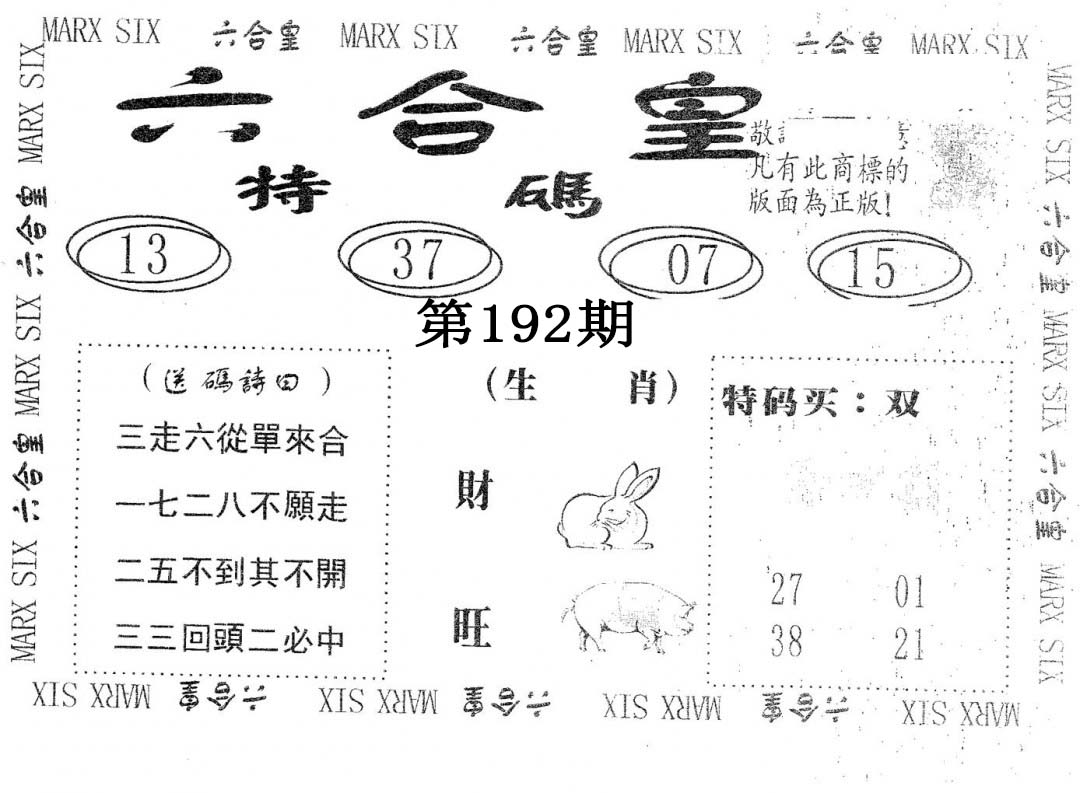 MARX SIX 六合皇 MARX SIX 六合皇 MARX SIX 六合皇 MARX SIX
六合皇
特碼
敬
凡有此商標的
版面為正版!
13 37 07 15
第192期
(送碼詩曰)
三走六從單來合
一七二八不願走
二五不到其不開
三三回頭二必中
(生肖)
財
旺
特码买：双
27 01
38 21
MARX SIX 六合皇 MARX SIX 六合皇 MARX SIX
MARX SIX 六合皇 MARX SIX 六合皇 MARX SIX
MARX SIX 六合皇 MARX SIX 六合皇 MARX SIX 六合皇 MARX SIX